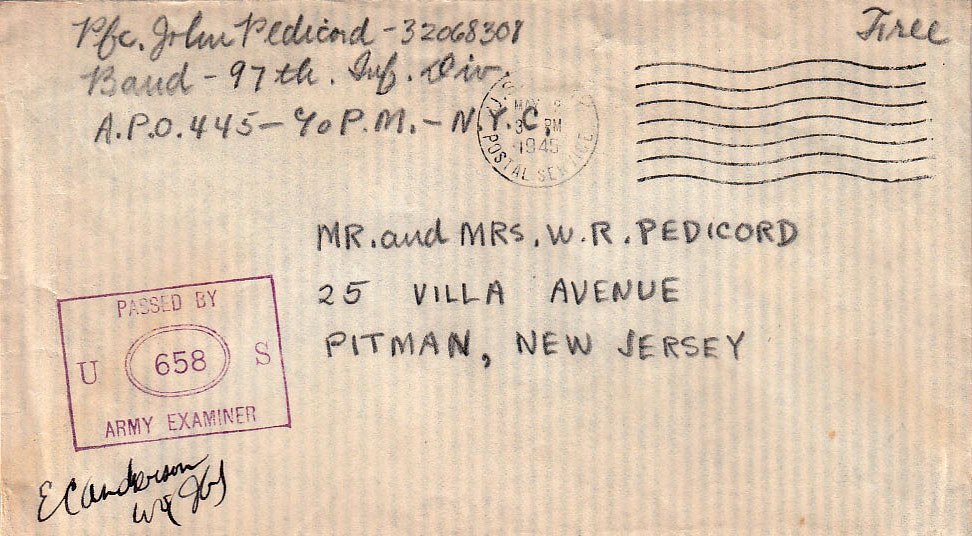 Pfc. John Pedicord - 32068308
Band - 97th. Inf. Div.
A.P.O. 445 - % P.M. - N.Y.C.
Free
U.S.
MAY
3 PM
1945
POSTAL SERVICE
MR. and MRS. W. R. PEDICORD
25 VILLA AVENUE
PITMAN, NEW JERSEY
PASSED BY
U 658 S
ARMY EXAMINER
E C Anderson